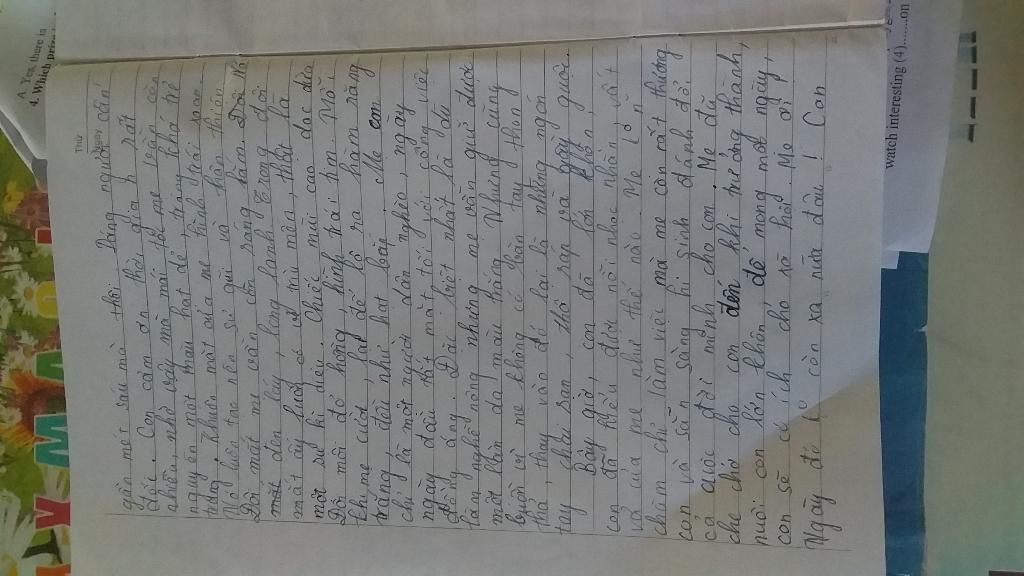 Thứ
Ngày
gần mét sáu mà thôi. Dáng người cân
đối. Con cảm ơn thời gian rất
nhiều, nhờ vậy mà mái tóc mẹ vẫn còn
nguyên một màu hạt dẻ, trông khá trẻ
trung. Khuôn mặt của mẹ hình trái xoan.
Nó luôn tạo nên sự gần gũi và thân thiện
Đôi mắt mẹ vẫn còn sáng lắm.
đen láy, long lanh. Trong đôi
mắt ấy luôn có vẻ trìu mến, thật là
một sự kì diệu. Chiếc mũi cao dọc dừa
Đôi môi đỏ hồng, hình trái tim. Mỗi
khi mẹ cười, lại để lộ ra hàm răng
trắng, đều như hạt bắp. Mẹ con
chỉ là một người dân nghèo, ngày
ngày đầu tắt mặt tối với công việc
đồng áng. Đặc biệt nhất là dù
làm nghề nông nhưng mẹ vẫn giữ được
một làn da màu trắng. Nhưng cũng
buồn vì mẹ không có bàn tay thon
thả, thay vào đó lại là những ngón
tay chai sạn, thô ráp và gầy guộc.
Bây giờ, con đã lớn khôn,
con đã hiểu được nỗi nhọc nhằn, vất
vả của mẹ như thế nào. Mẹ luôn
chăm chỉ làm việc mà mẹ còn rất thương
con và sẵn sàng hi sinh đánh đổi
cả cuộc đời mình cho con. Mẹ đã
che chở cho con đến khi trưởng thành,
nuôi con lớn khôn, để mong một ngày,
con sẽ có ích cho xã hội. Mẹ ơi!
Ngày đó không còn xa nữa đâu! Con
A. Yes, there is
4. Which
watch interesting (4)........on